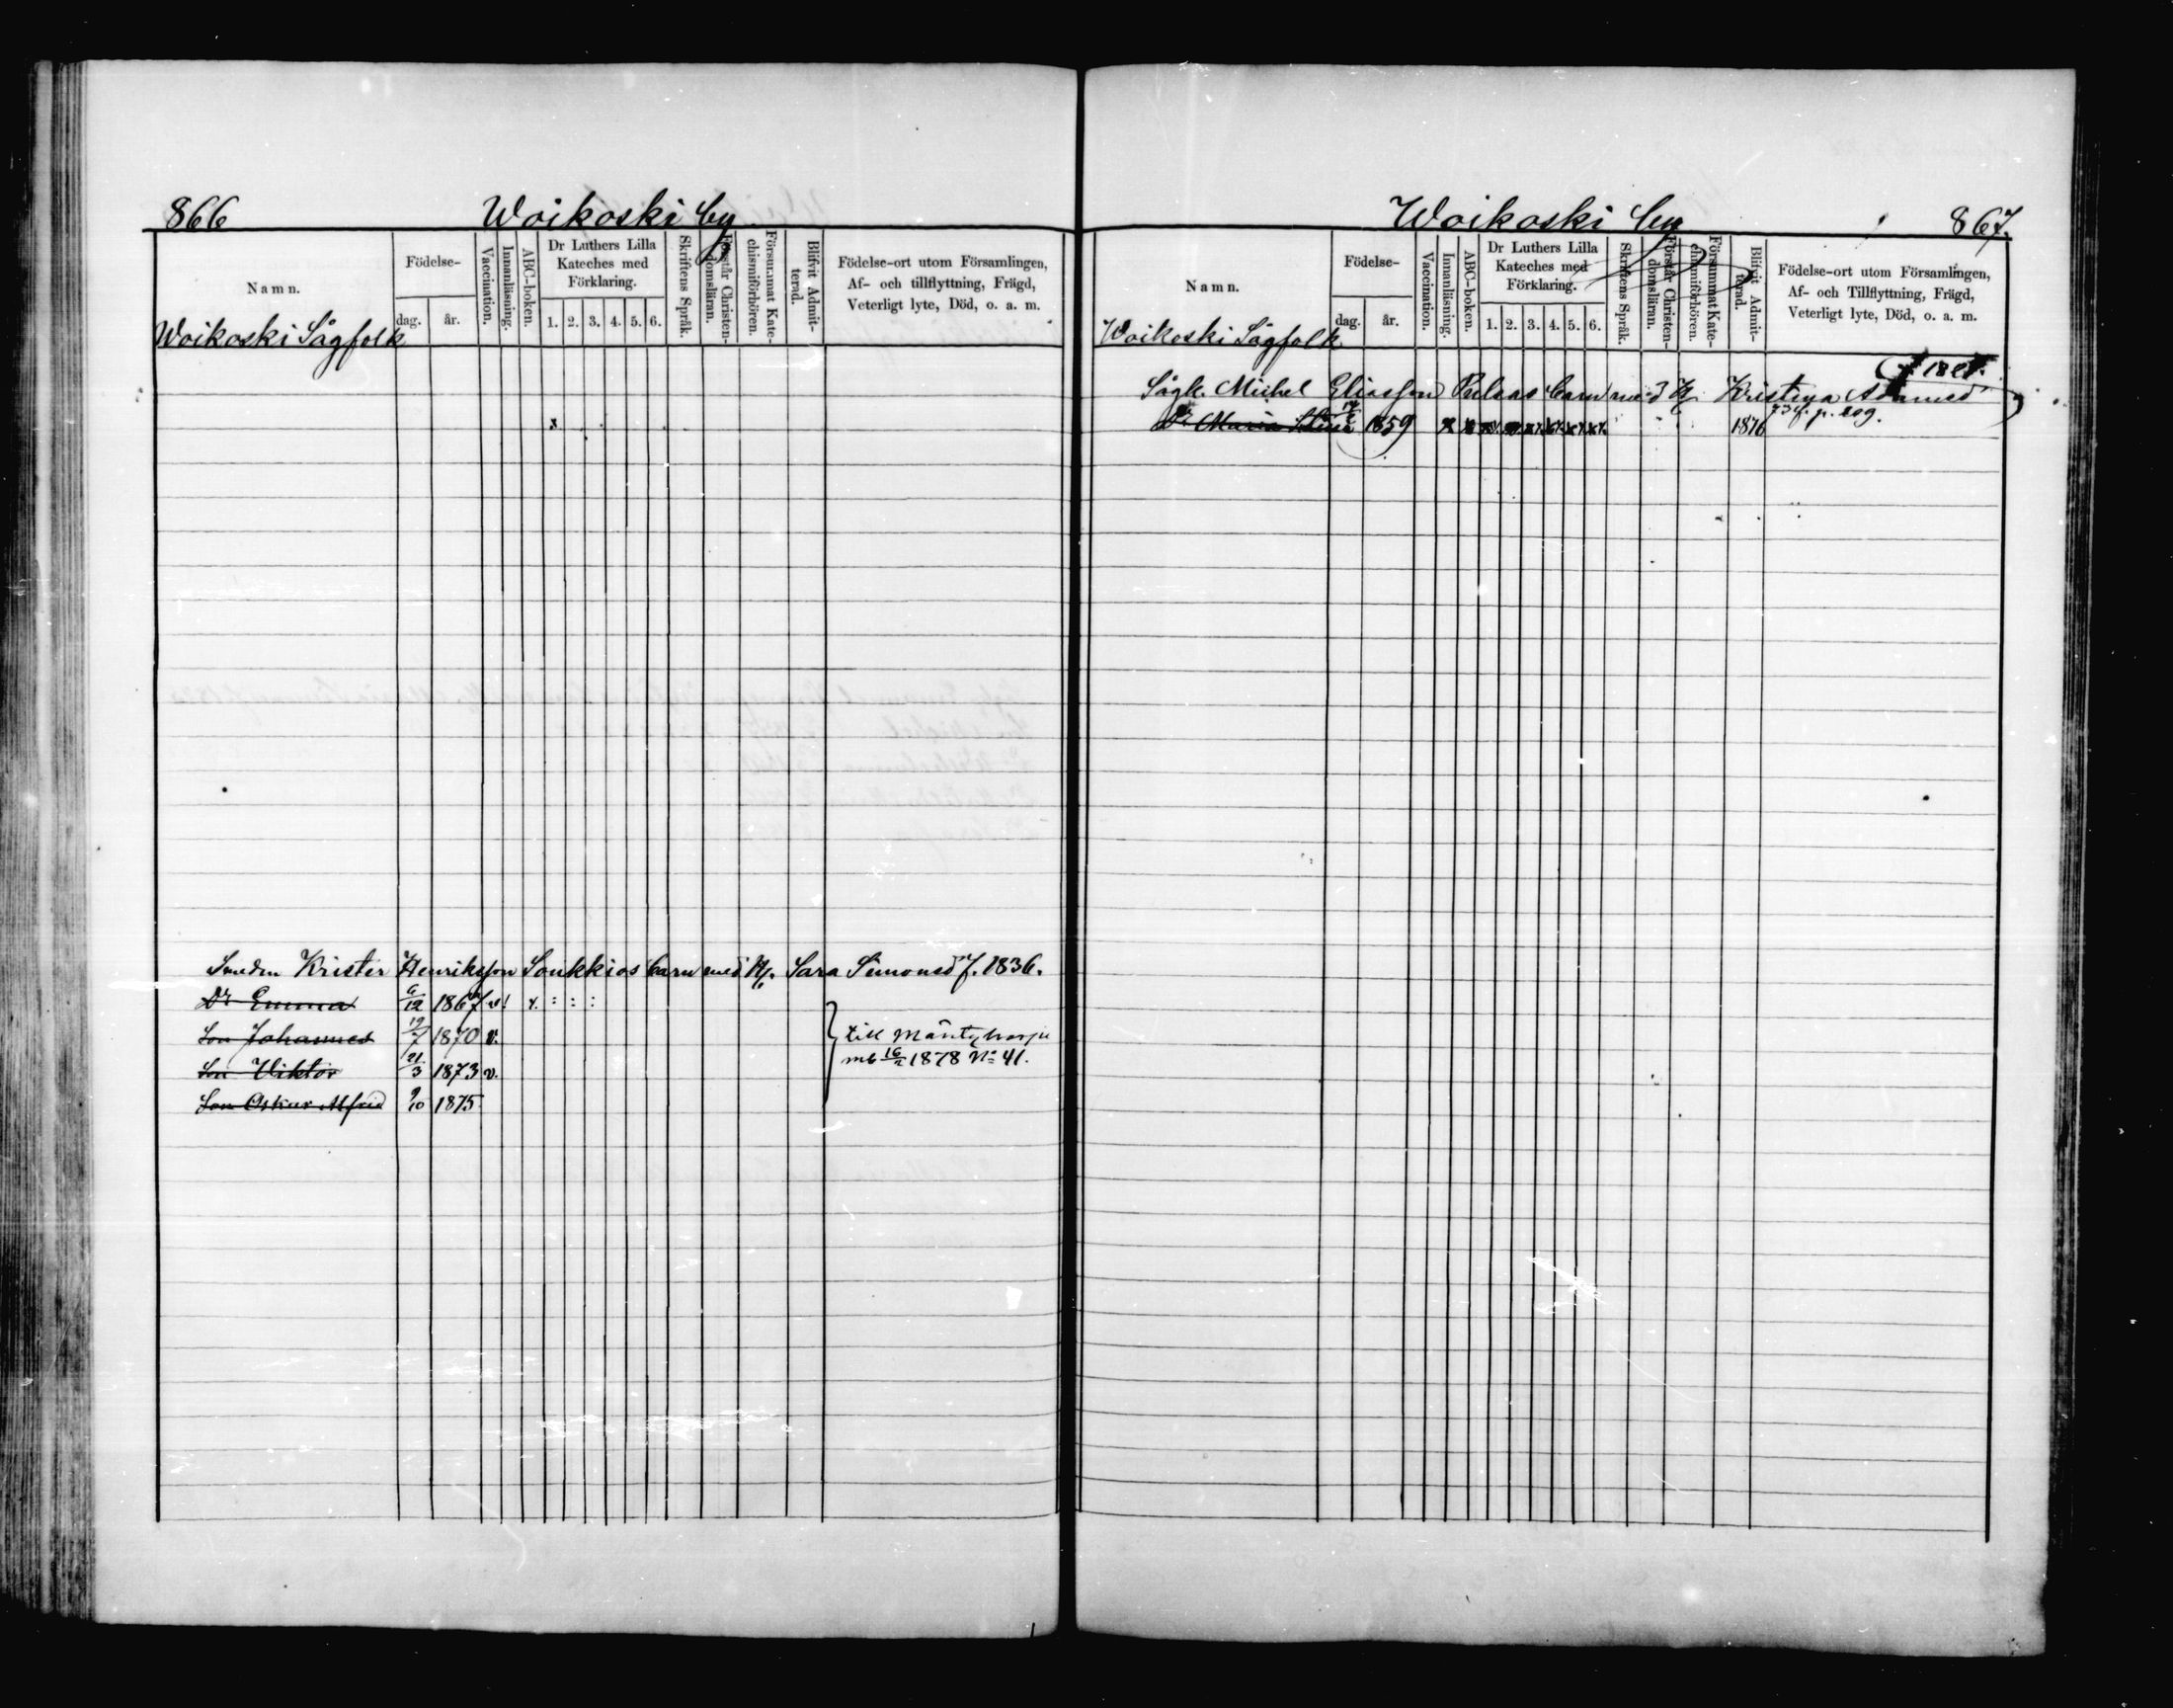 866
Woikoski by
Namn.
Födelse-
dag.
år.
Vaccination.
Innanläsning.
ABC-boken.
Dr Luthers Lilla
Kateches med
Förklaring.
1. 2. 3. 4. 5. 6.
Skriftens Språk.
Förstår Christen-
domsläran.
Försummat Kate-
chismiförhören.
Blifvit Admit-
terad.
Födelse-ort utom Församlingen,
Af- och tillflyttning, Frägd,
Veterligt lyte, Död, o. a. m.
Woikoski Sågfolk
x
Smeden Krister Henriksson Soukkios barn med H. Sara Simonsdr f. 1836.
Dr Emma 6/12 1867 v! x. : : :
Son Johannes 19/7 1870 v.
till Mäntyharju
Son Viktor 21/3 1873 v.
mb 16/2 1878 No 41.
Son Oskar Alfrid 9/10 1875
Woikoski by
867.
Namn.
Födelse-
dag.
år.
Vaccination.
Innanläsning.
ABC-boken.
Dr Luthers Lilla
Kateches med
Förklaring.
1. 2. 3. 4. 5. 6.
Skriftens Språk.
Förstår Christen-
domsläran.
Försummat Kate-
chismiförhören.
Blifvit Admit-
terad.
Födelse-ort utom Församlingen,
Af- och Tillflyttning, Frägd,
Veterligt lyte, Död, o. a. m.
Woikoski Sågfolk
Sågk. Michel Eliasson barn med H. Kristina
Dr Maria 1859 1876 p. 209.